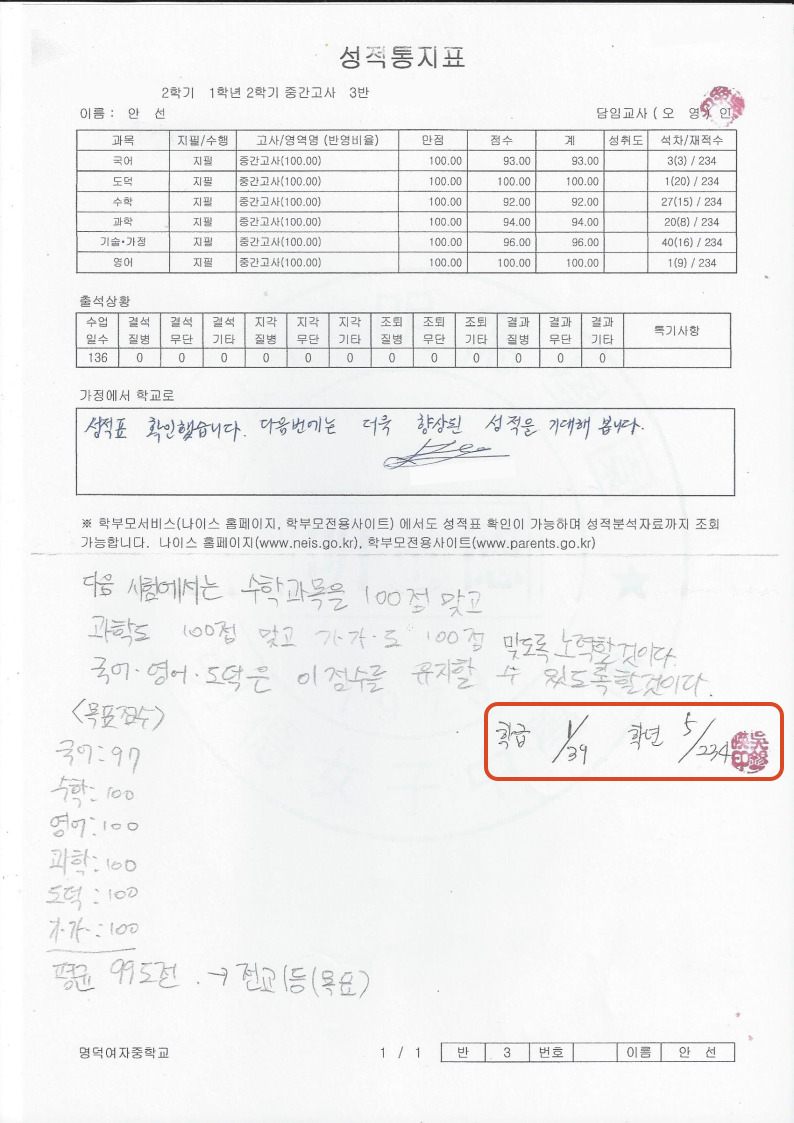 성적통지표
2학기 1학년 2학기 중간고사 3반
이름 : 안 선 담임교사 ( 오 영 ) 인
과목 지필/수행 고사/영역명 (반영비율) 만점 점수 계 성취도 석차/재적수
국어 지필 중간고사(100.00) 100.00 93.00 93.00 3(3) / 234
도덕 지필 중간고사(100.00) 100.00 100.00 100.00 1(20) / 234
수학 지필 중간고사(100.00) 100.00 92.00 92.00 27(15) / 234
과학 지필 중간고사(100.00) 100.00 94.00 94.00 20(8) / 234
기술·가정 지필 중간고사(100.00) 100.00 96.00 96.00 40(16) / 234
영어 지필 중간고사(100.00) 100.00 100.00 100.00 1(9) / 234
출석상황
수업 결석 결석 결석 지각 지각 지각 조퇴 조퇴 조퇴 결과 결과 결과 특기사항
일수 질병 무단 기타 질병 무단 기타 질병 무단 기타 질병 무단 기타
136 0 0 0 0 0 0 0 0 0 0 0 0
가정에서 학교로
성적표 확인했습니다. 다음번에는 더욱 향상된 성적을 기대해 봅니다.
※ 학부모서비스(나이스 홈페이지, 학부모전용사이트) 에서도 성적표 확인이 가능하며 성적분석자료까지 조회
가능합니다. 나이스 홈페이지(www.neis.go.kr), 학부모전용사이트(www.parents.go.kr)
다음 시험에서는 수학과목을 100점 맞고
과학도 100점 맞고 기·가·도 100점 맞도록 노력할것이다.
국어·영어·도덕은 이 점수를 유지할 수 있도록할것이다.
<목표점수>
학급 1/39 학년 5/234
국어 : 97
수학 : 100
영어 : 100
과학 : 100
도덕 : 100
기·가 : 100
평균 99.5점 → 전교1등(목표)
명덕여자중학교 1 / 1 반 3 번호 이름 안 선